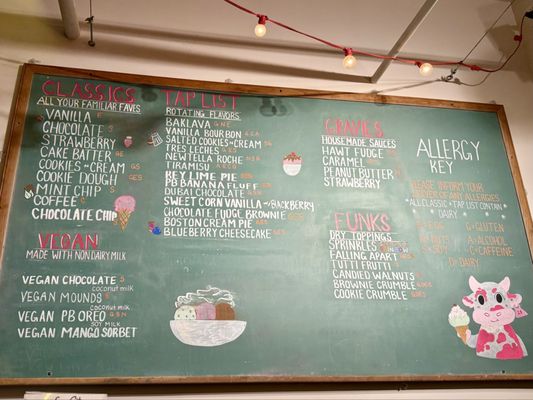 CLASSICS
ALL YOUR FAMILIAR FAVES
VANILLA E
CHOCOLATE
STRAWBERRY
CAKE BATTER
COOKIES 'N CREAM
COOKIE DOUGH
MINT CHIP
COFFEE
CHOCOLATE CHIP
VEGAN
MADE WITH NON DAIRY MILK
VEGAN CHOCOLATE
coconut milk
VEGAN MOUNDS
coconut milk
VEGAN PB OREO
SOY MILK
VEGAN MANGO SORBET
TAP LIST
ROTATING FLAVORS
BAKLAVA
VANILLA BOURBON
SALTED COOKIES 'N CREAM
TRES LECHES
NEWTELLA ROCHE
TIRAMISU
KEY LIME PIE
PB BANANA FLUFF
DUBAI CHOCOLATE
SWEET CORN VANILLA w/BLACKBERRY
CHOCOLATE FUDGE BROWNIE
BOSTON CREAM PIE
BLUEBERRY CHEESECAKE
GRAVIES
HOUSEMADE SAUCES
HAWT FUDGE
CARAMEL
PEANUT BUTTER
STRAWBERRY
FUNKS
DRY TOPPINGS
SPRINKLES
FALLING APART
TUTTI FRUTTI
CANDIED WALNUTS
BROWNIE CRUMBLE
COOKIE CRUMBLE
ALLERGY
KEY
PLEASE INFORM YOUR
OF ANY ALLERGIES
ALL CLASSIC + TAP LIST CONTAIN
DAIRY
E = EGGS
G = GLUTEN
N = NUTS
A = ALCOHOL
S = SOY
C = CAFFEINE
D = DAIRY